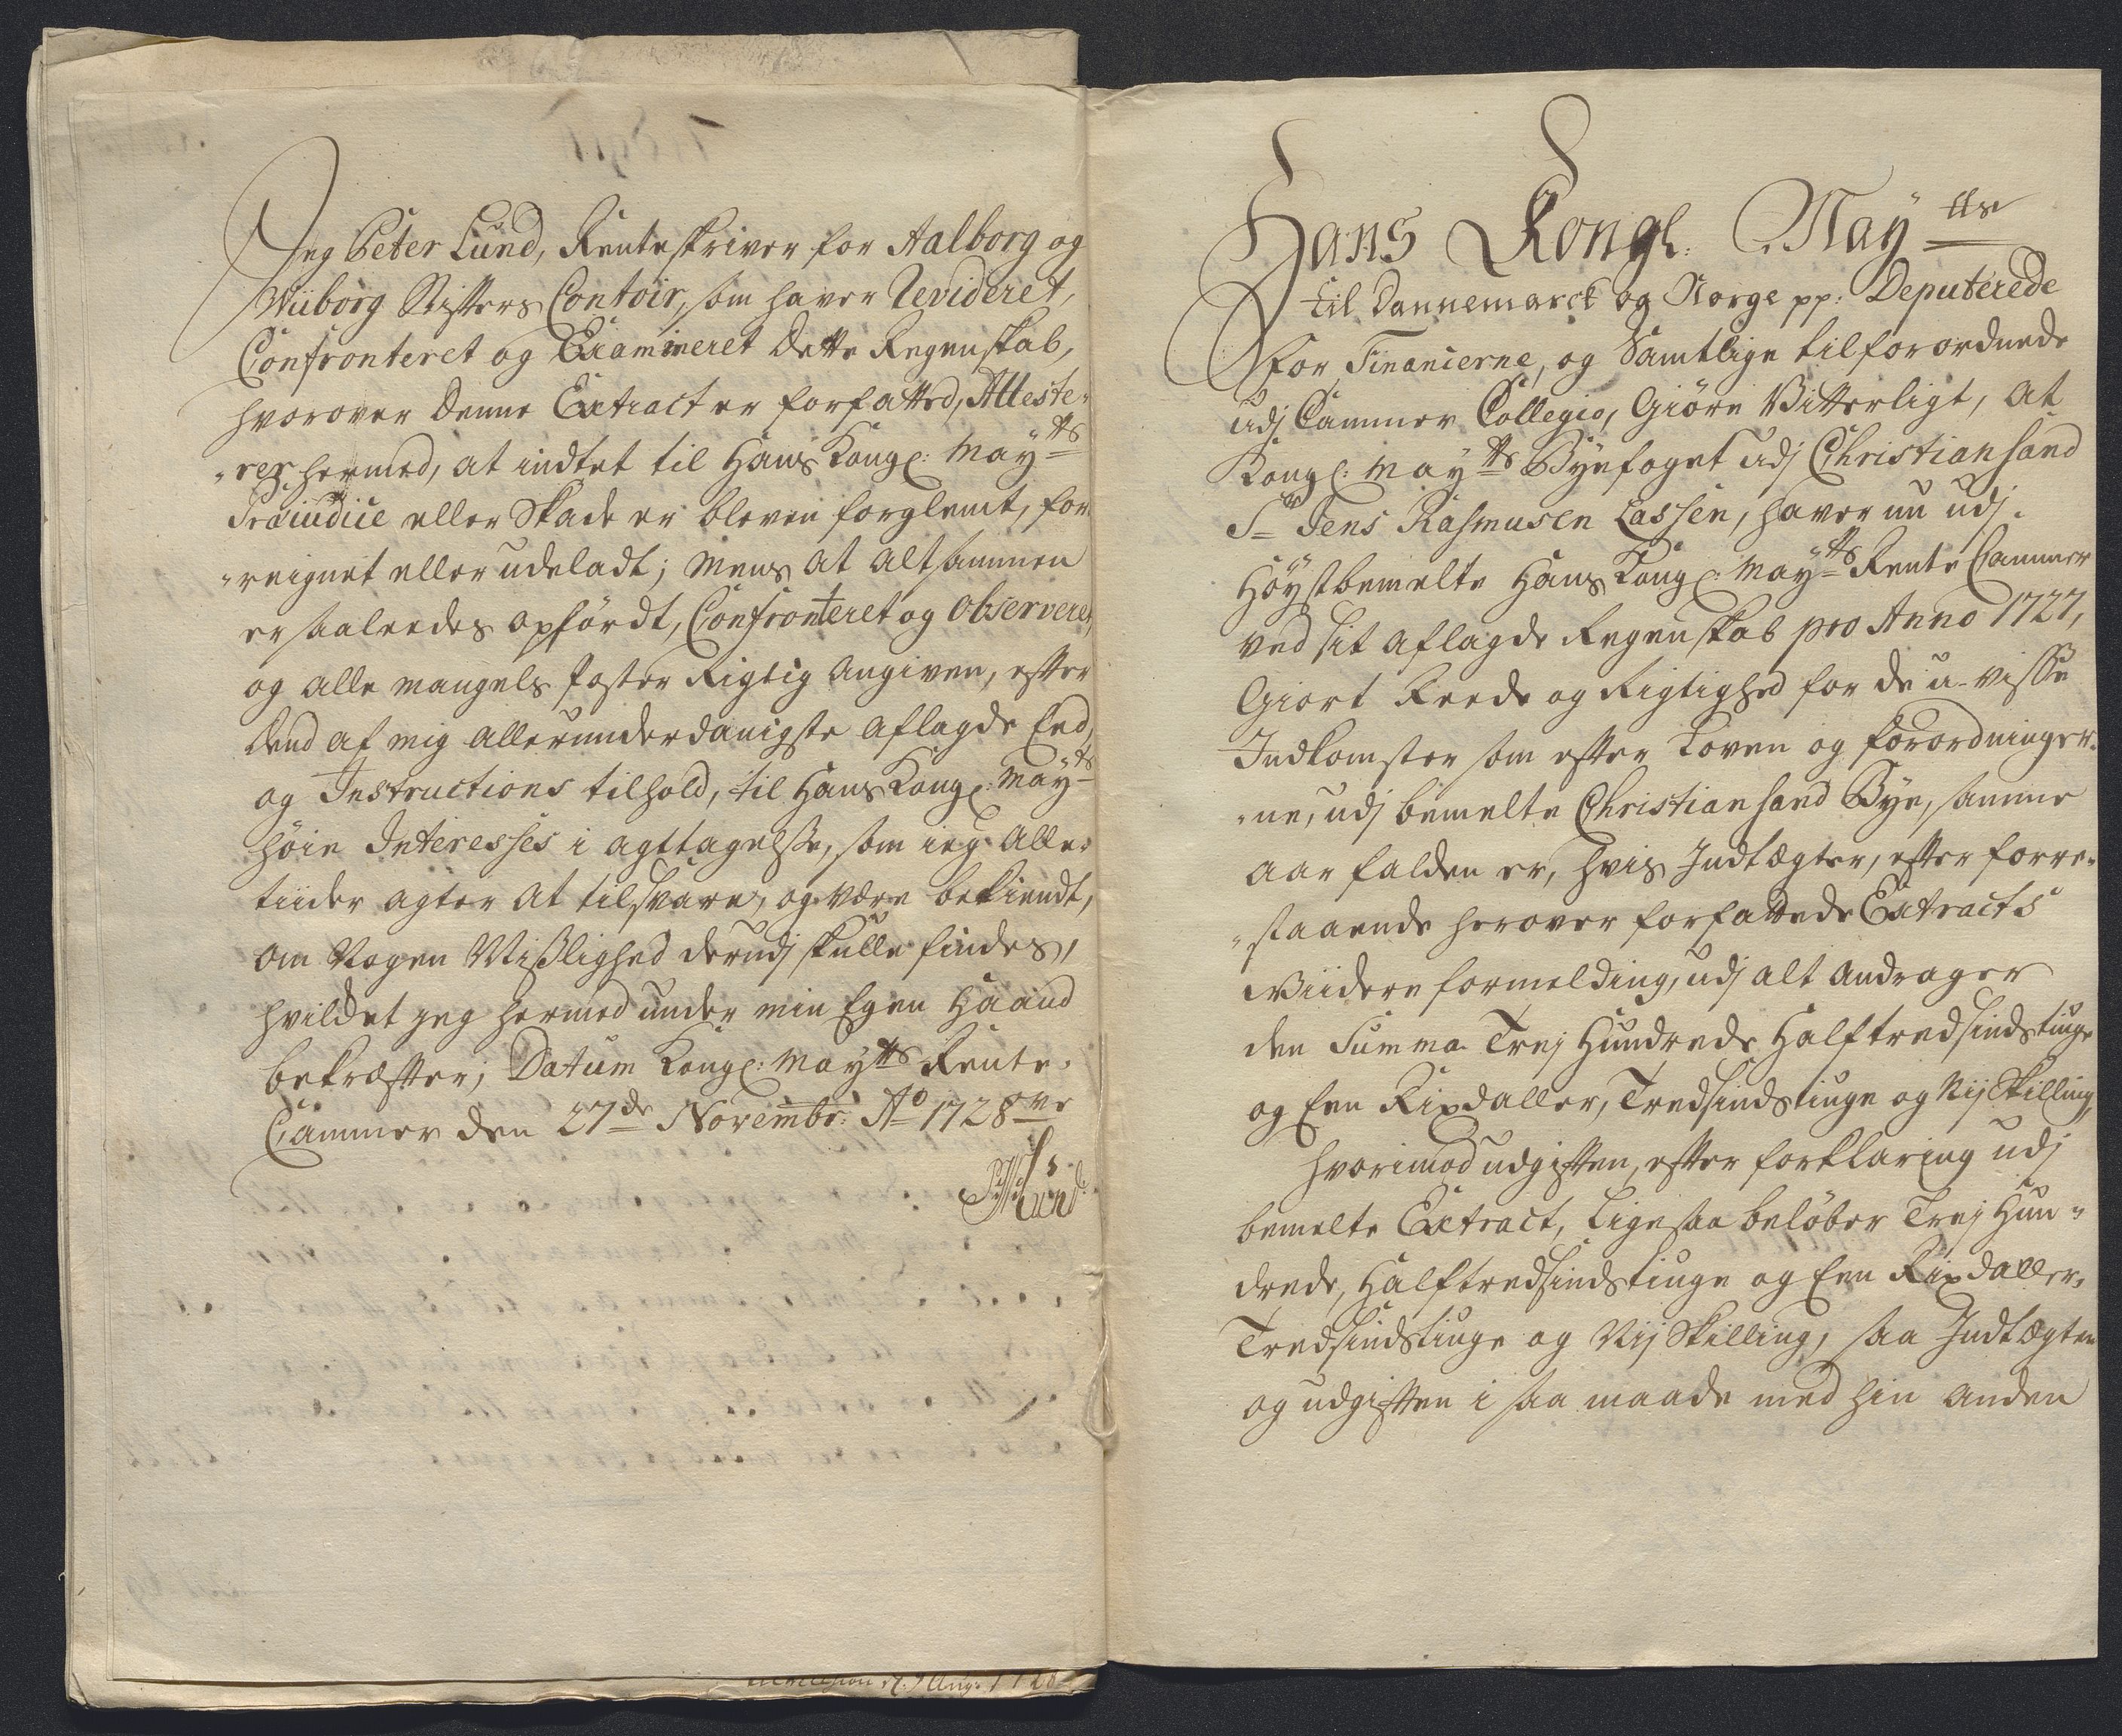 Jeg Peter Lund, Renteskriver for Aalborg og
Wiiborg Stifters Contoir, som haver Revideret,
Confronteret og Examineret dette Regenskab,
hvorover denne Extract er forfatted, Atteste-
-rer hermed, at indtet til Hans Kongl: May:ts
Præiudice eller Skade er bleven forglemt, for
-reignet eller udeladt; mens at altsammen
er saaleedes opfördt, Confronteret og Observeret,
og alle mangels poster Rigtig angiven, efter
dend af mig allerunderdanigste aflagde Eed,
og Instructions tilhold, til Hans Kongl: May:ts
höie Interesses i agttagelsse, som ieg alle-
tiider agter at tilsvare, og være bekiendt,
om Nogen Wislighed derudj skulle findes,
hvildet jeg hermed under min Egen Haand
bekræfter; Datum Kongl: May:ts Rente-
Cammer den 27de Novembr: Ao 1728ve
PLund
Hans Kongl: May:tts
til Dannemarck og Norge pp: Deputerede
for Financierne, og Samtlige tilforordnede
udj Cammer Collegio, Giöre Vitterligt, at
Kongl: May:ts Byefoget udj Christiansand
Sr Jens Rasmusen Lassen, haver nu udj
Höystbemelte Hans Kongl: May:ts Rente Cammer
ved sit aflagde Regenskab pro Anno 1727,
Giort Reede og Rigtighed for de u-visse
Indkomster som efter Loven og forordninger-
-ne, udj bemelte Christiansand Bye, samme
aar falden er, hvis Indtægter, efter forre-
-staaende herover forfattede Extracts
Viidere formelding, udj alt andrager
den Summa Trej Hundrede Halftredsindstiuge
og Een Rixdaller, Tredsindstiuge og Nij Skilling,
hvorimod udgiften, efter forklaring udj
bemelte Extract, ligesaa belöber Trej Hun-
drede, Halftredsindstiuge og Een Rixdaller,
Tredsindstiuge og Nij Skilling, saa Indtægten
og udgiften i saa maade med hin anden